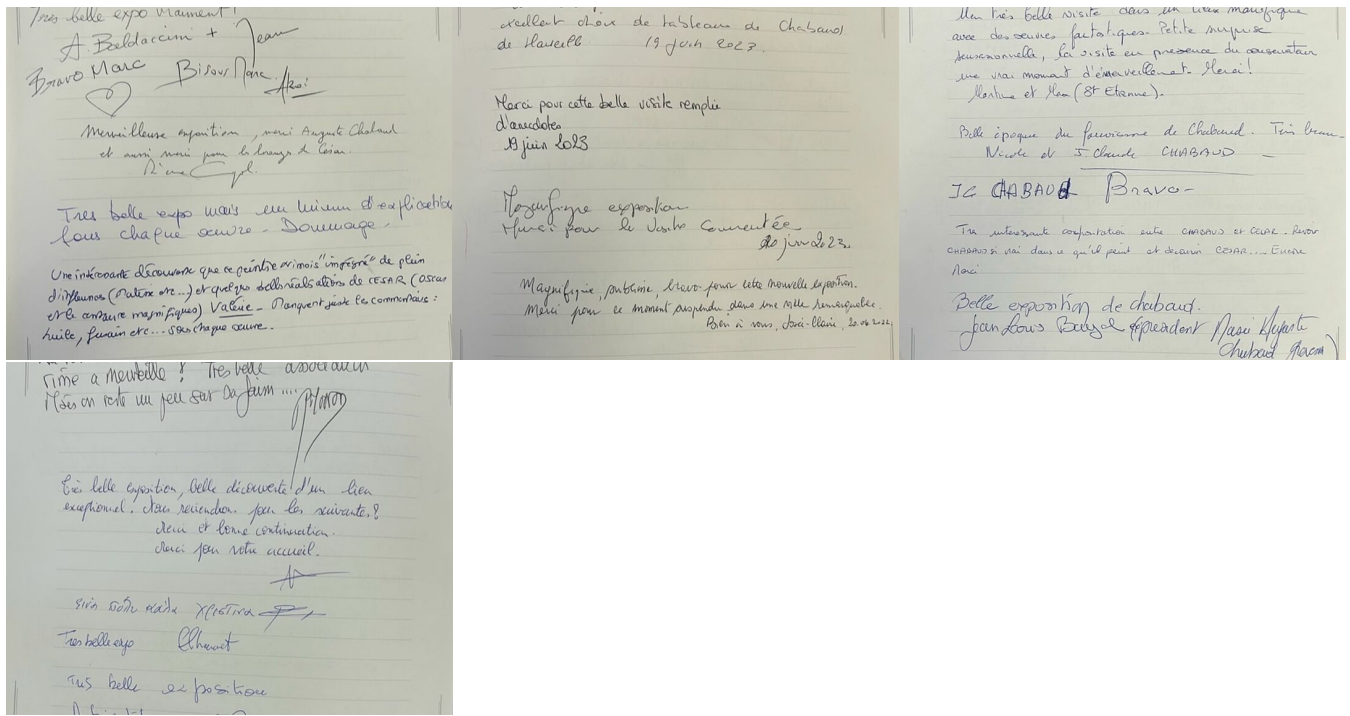 Tres belle expo vraiment!
A. Baldaccini + Jean
Bravo Marc
Bisous Marc
Merveilleuse exposition, merci Auguste Chabaud
et aussi merci pour les bronzes de César.
Tres belle expo mais un minimum d'explication
sous chaque oeuvre - Dommage.
Une intéressante découverte que ce peintre nimois "imprégné" de plein
d'influences (Matisse etc...) et quelques belles réalisations de CESAR (Oscar
et le centaure magnifiques) Valérie - Manquent juste les commentaires :
huile, fusain etc... sous chaque oeuvre..
excellent choix de tableaux de Chabaud
de 19 juin 2023.
Merci pour cette belle visite remplie
d'anecdotes
19 juin 2023
Magnifique exposition
Merci pour la visite commentée
20 juin 2023.
Magnifique, sublime, bravo pour cette nouvelle exposition.
Merci pour ce moment suspendu dans une ville remarquable.
Bien à vous, 20.06.2023
Une très belle visite dans un lieux magnifique
avec des oeuvres fantastiques. Petite surprise
sensationnelle, la visite en présence du conservateur
une vrai moment d'émerveillement. Merci!
Martine et (St Etienne).
Belle époque du fauvisme de Chabaud. Très beau
Nicole et J. Claude CHABAUD
JC CHABAUD Bravo-
Très interessante confrontation entre CHABAUD et CESAR.
CHABAUD si vrai dans ce qu'il peint et dessine CESAR.... Encore
Merci
Belle exposition de chabaud.
Jean Louis président Musée Auguste
Chabaud
rime a merveille! Tres belle association
Mais on reste un peu sur sa faim....
Très belle exposition, belle découverte d'un lieu
exceptionnel. Nous reviendrons pour les suivantes!
Merci et bonne continuation.
Merci pour votre accueil.
είναι πολύ καλά Χριστίνα
Tres belle expo
Très belle exposition